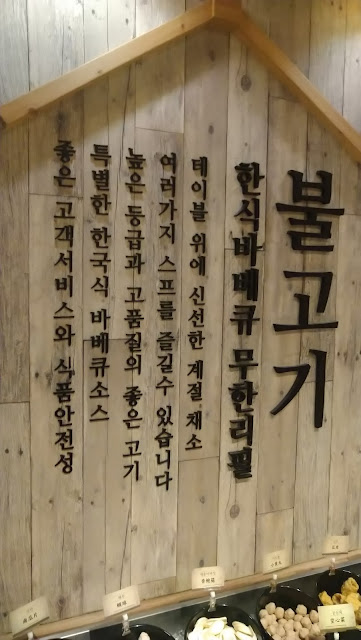 불고기
한식바베큐 무한리필
테이블 위에 신선한 계절 채소
여러가지 스프를 즐길수 있습니다
높은 등급과 고품질의 좋은 고기
특별한 한국식 바베큐소스
좋은 고객서비스와 식품안전성